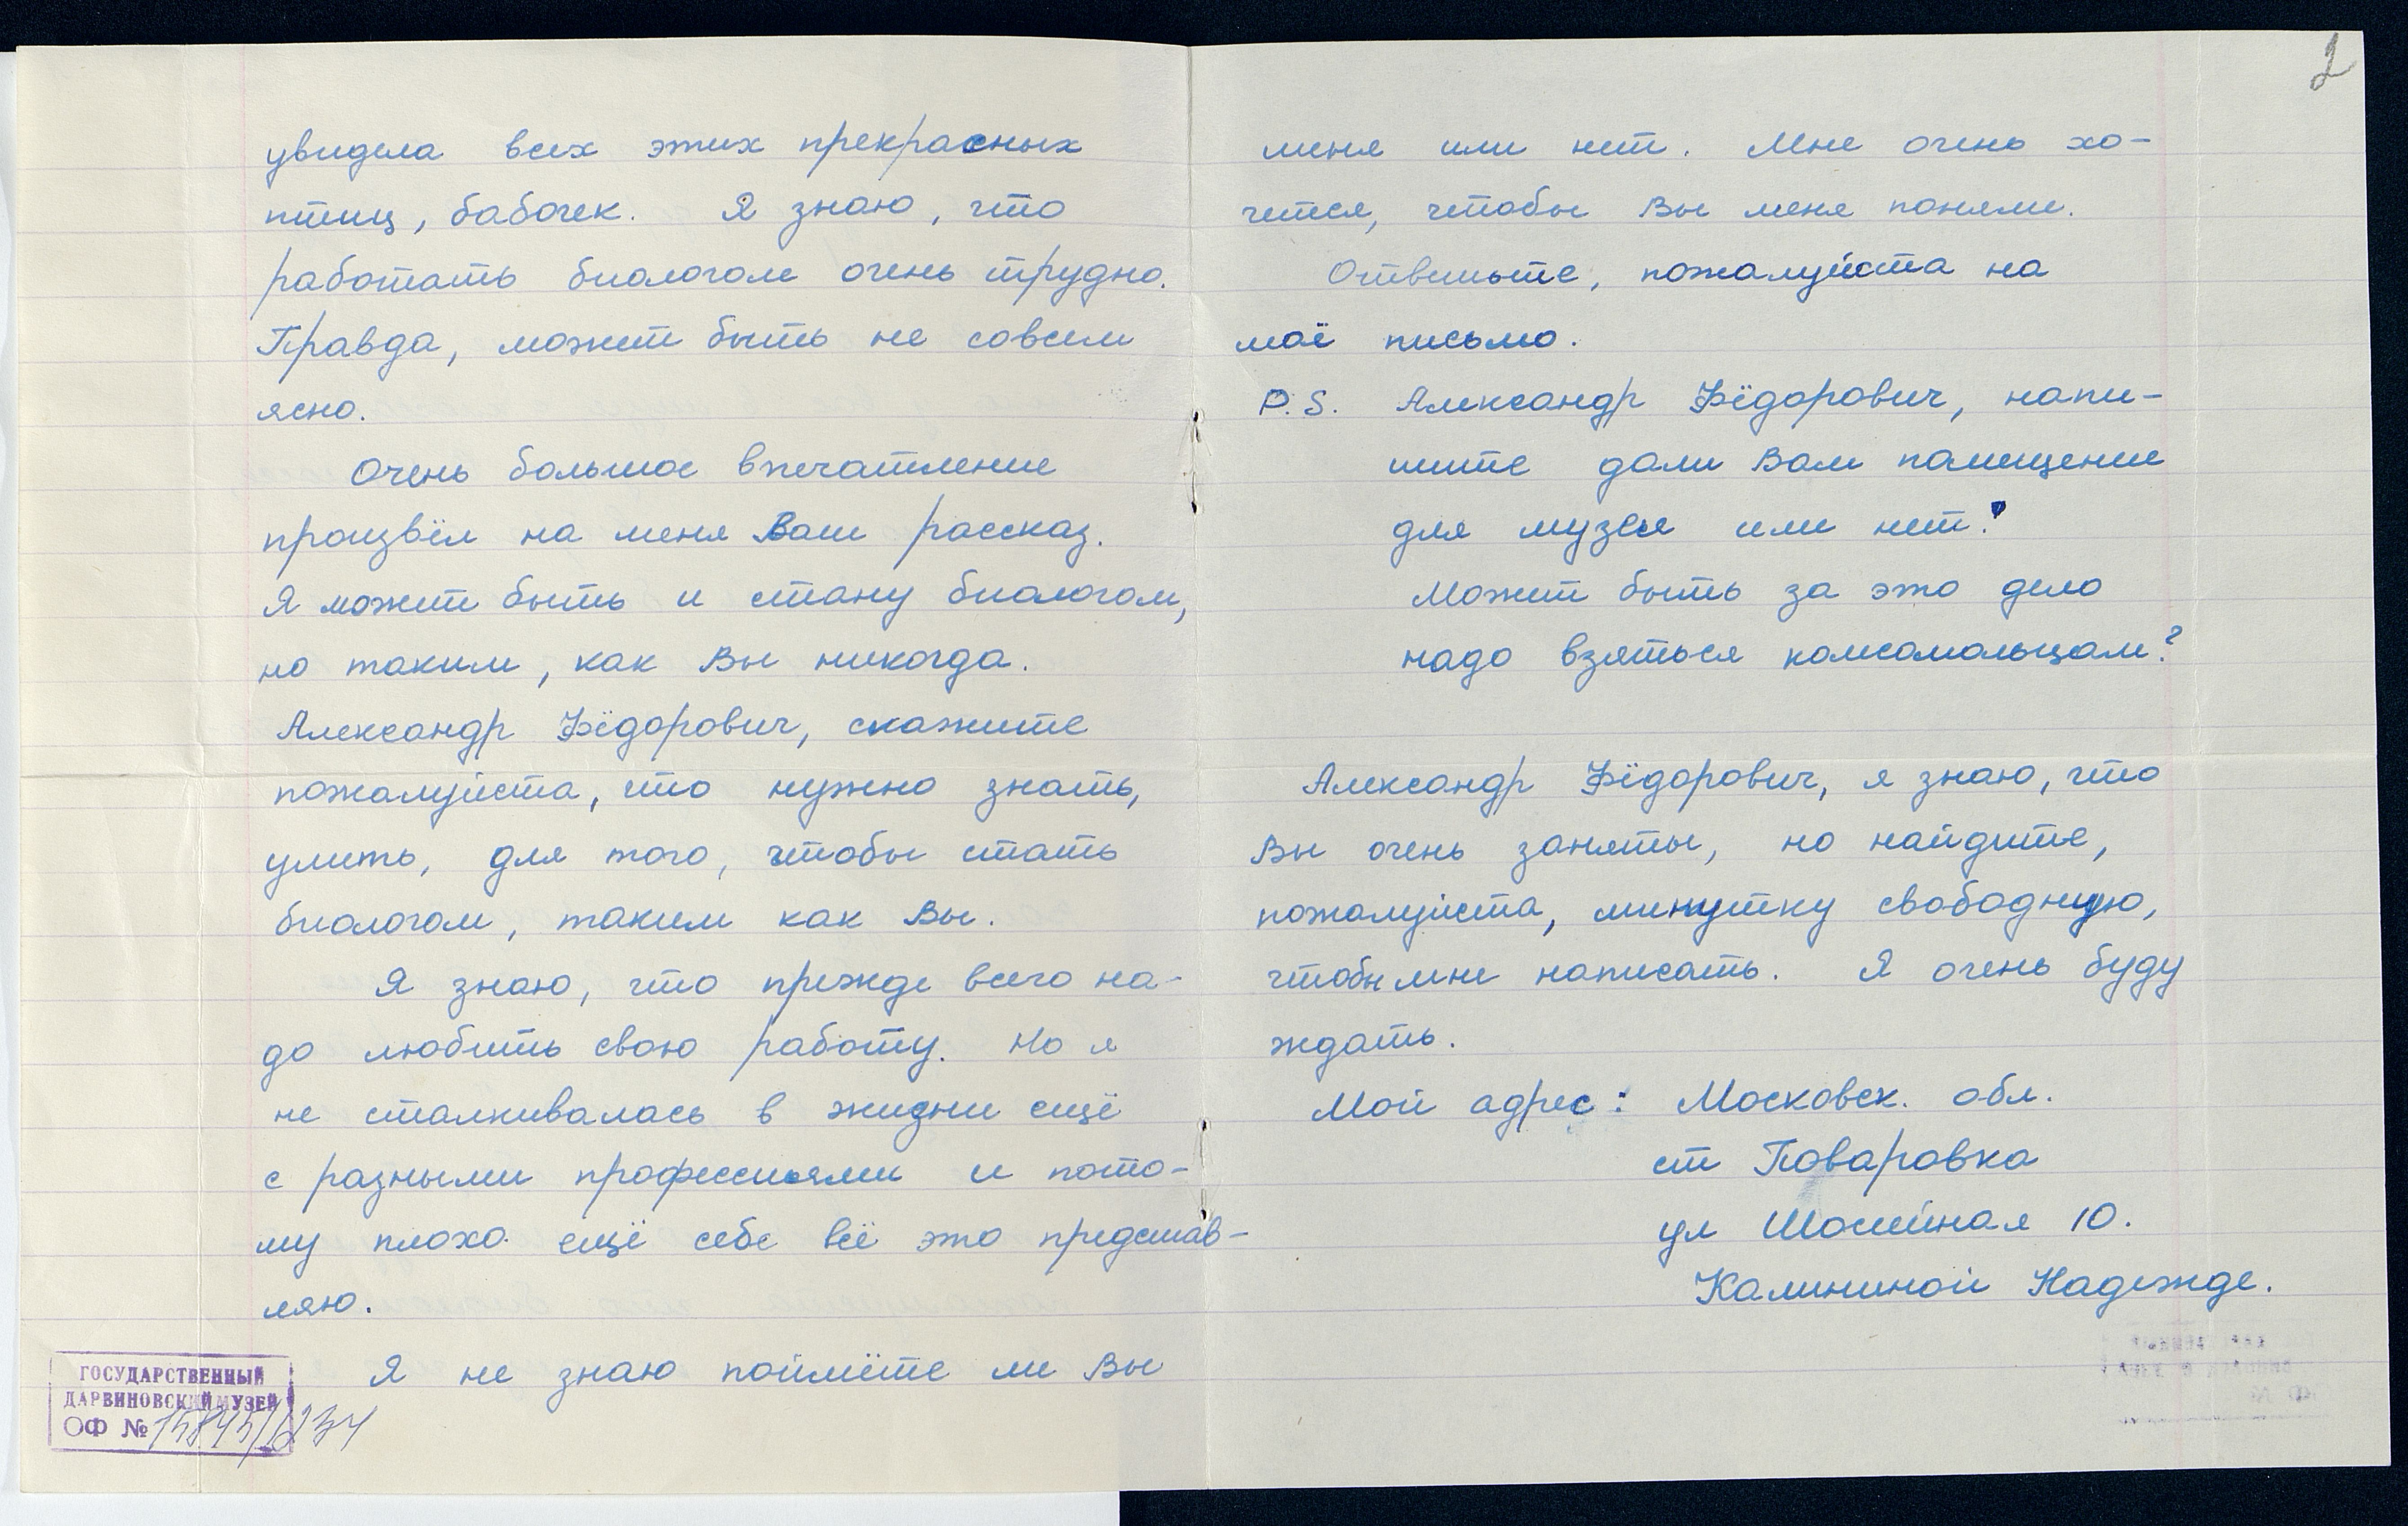 увидела всех этих прекрасных
птиц, бабочек. Я знаю, что
работать биологом очень трудно.
Правда, может быть не совсем
ясно.
Очень большое впечатление
произвёл на меня Ваш рассказ.
Я может быть и стану биологом,
но таким, как Вы никогда.
Александр Фёдорович, скажите
пожалуйста, что нужно знать,
уметь, для того, чтобы стать
биологом, таким как Вы.
Я знаю, что прежде всего на-
до любить свою работу. Но я
не сталкивалась в жизни ещё
с разными профессиями и пото-
му плохо ещё себе всё это представ-
ляю.
Я не знаю поймёте ли Вы
ГОСУДАРСТВЕННЫЙ
ДАРВИНОВСКИЙ МУЗЕЙ
ОФ №
2
меня или нет. Мне очень хо-
чется, чтобы Вы меня поняли.
Ответьте, пожалуйста на
моё письмо.
P.S. Александр Фёдорович, напи-
шите дали Вам помещение
для музея или нет?
Может быть за это дело
надо взяться комсомольцам?
Александр Фёдорович, я знаю, что
Вы очень заняты, но найдите,
пожалуйста, минутку свободную,
чтобы мне написать. Я очень буду
ждать.
Мой адрес: Московск. обл.
ст Поваровка
ул Шоссейная 10.
Калининой Надежде.